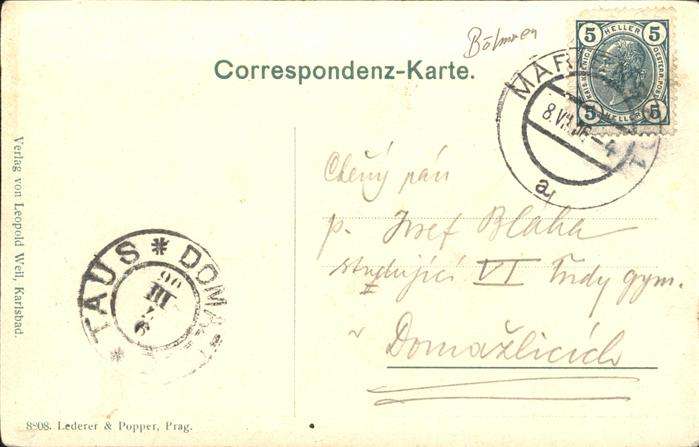 Böhmen
Correspondenz-Karte.
5 HELLER 5
5 HELLER 5
MAR
8.VII.06-4
a
Ctěný pán
p. Josef Blaha
studující VI třídy gym.
v Domažlicích
TAUS * DOMA
06
III
Verlag von Leopold Weil, Karlsbad.
8808. Lederer & Popper, Prag.